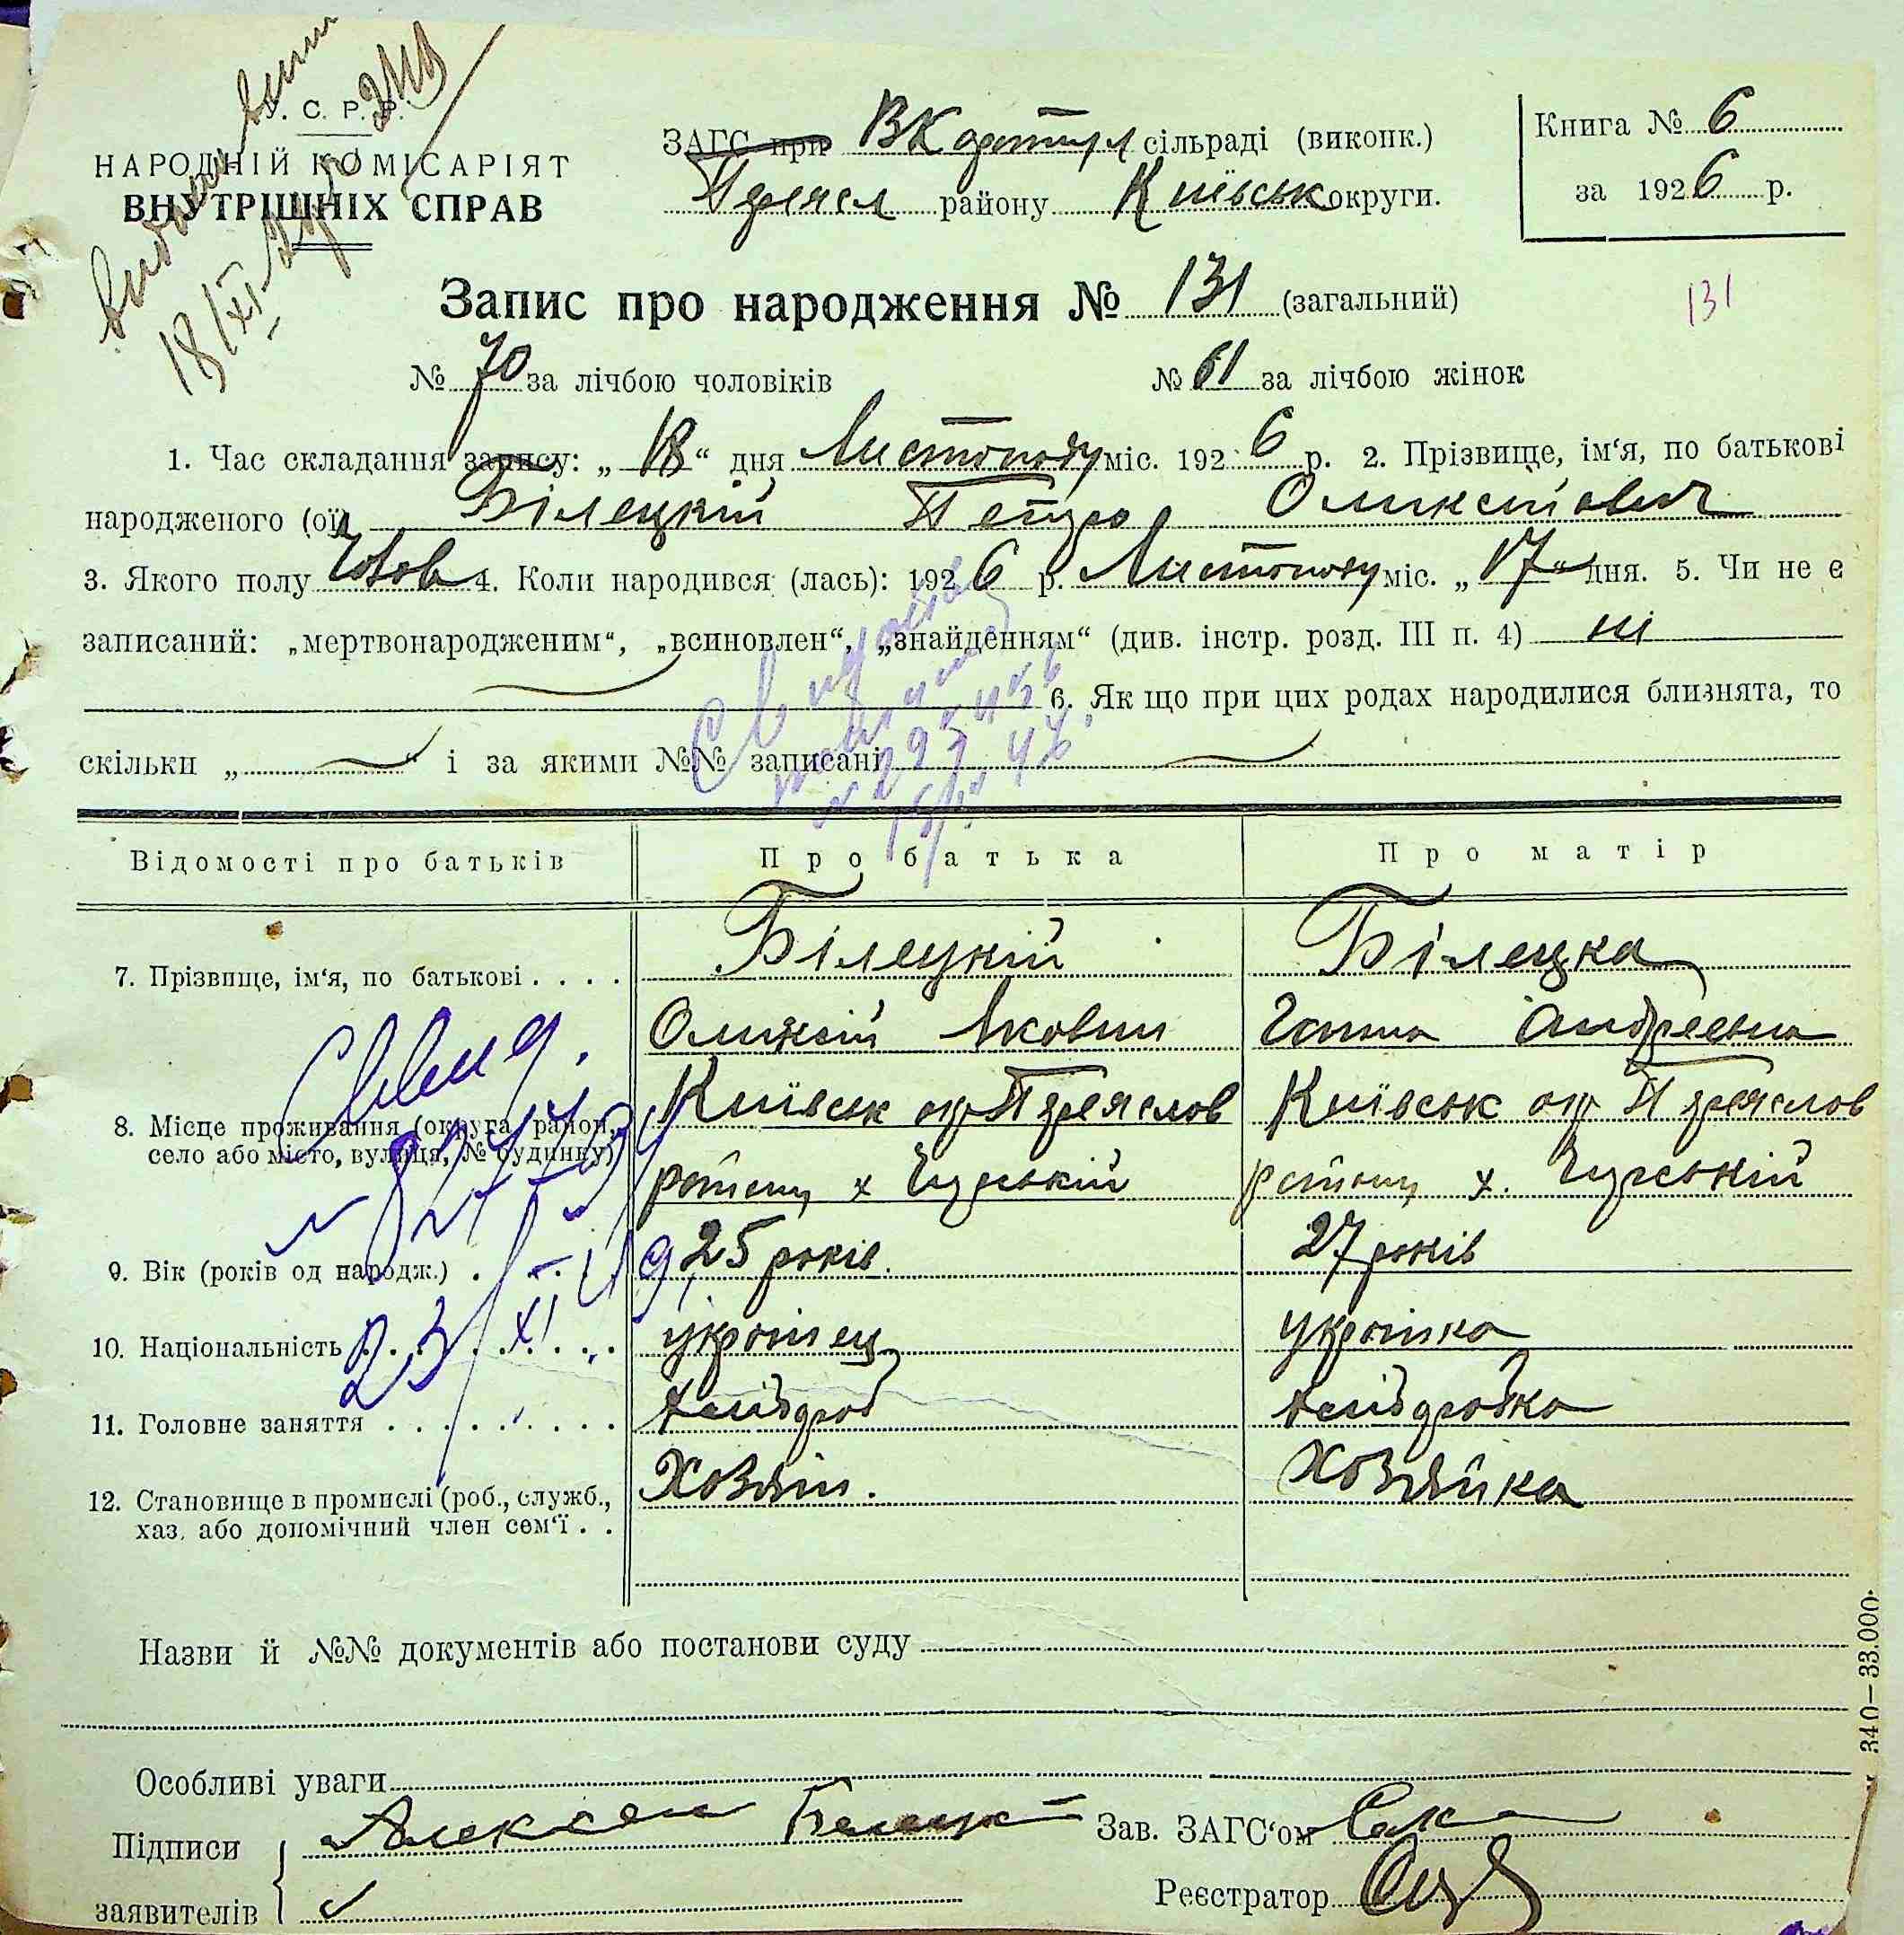 У. С. Р. Р.
НАРОДНІЙ КОМІСАРІЯТ
ВНУТРІШНІХ СПРАВ
18/XI
ЗАГС при ВКаратул сільраді (виконк.)
Переясл району Київськ округи.
Книга № 6
за 1926 р.
Запис про народження № 131 (загальний)
131
№ 70 за лічбою чоловіків № 61 за лічбою жінок
1. Час складання запису: „ 18 “ дня Листопаду міс. 1926 р. 2. Прізвище, ім‘я, по батькові
народженого (ої) Білецкій Петро Оликсійович
3. Якого полу Чолов 4. Коли народився (лась): 1926 р. Листопаду міс. „ 17 “ дня. 5. Чи не є
записаний: „мертвонародженим“, „всиновлен“, „знайденням“ (див. інстр. розд. III п. 4) ні
6. Як що при цих родах народилися близнята, то
скільки „ “ і за якими №№ записані
Відомості про батьків Про батька Про матір
7. Прізвище, ім‘я, по батькові . . . . Білецкій Білецка
Оликсій Якович Ганна Андреевна
8. Місце проживання (округа, район, Київськ окр Переяслов Київськ окр Переяслов
село або місто, вулиця, № будинку)
району х району х.
Свид.
9. Вік (років од народж.) . 25 років. 27 років
10. Національність . . . . українец українка
23/XI
11. Головне заняття . . . . . . . . . хлібороб хліборобка
12. Становище в промислі (роб., служб., Хозяін. Хозяйка
хаз. або допомічний член сем‘ї . .
Назви й №№ документів або постанови суду
Особливі уваги
340—33.000.
Підписи Алексей Белецк Зав. ЗАГС‘ом
заявителів Реєстратор